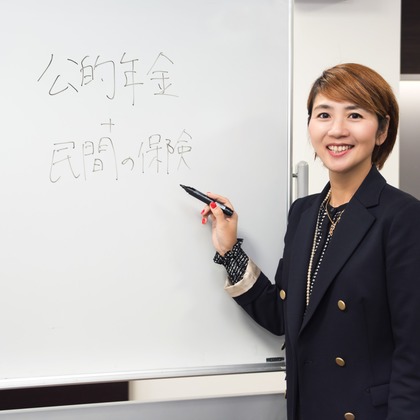 公的年金
+
民間の保険